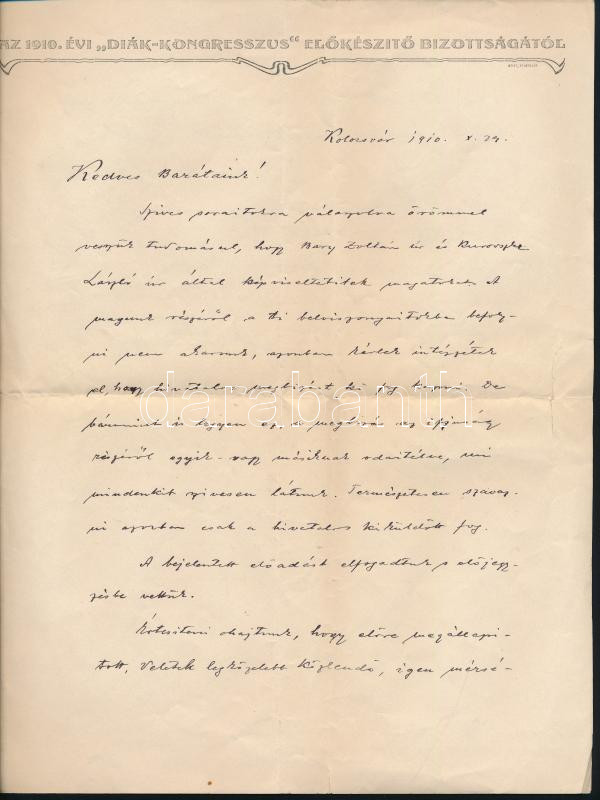 AZ 1910. ÉVI „DIÁK-KONGRESSZUS“ ELŐKÉSZITŐ BIZOTTSÁGÁTÓL
Kolozsvár 1910. X. 29.
Kedves Barátaink!
Szives soraitokra válaszolva örömmel
veszük tudomásul, hogy Bary Zoltán úr és
László úr által képviseltetitek magatokat. A
magunk részéről a ti belviszonyaitokba befoly-
ni nem akarunk, azonban kérlek intézzétek
el, hogy hivatalos megbizást ki fog kapni. De
bármint is legyen ez, a megbizás az ifjúság
részéről egyik- vagy másiknak odaitélve, mi
mindenkit szivesen látunk. Természetesen szavaz-
ni azonban csak a hivatalos kiküldött fog.
A bejelentett előadást elfogadtuk s előjegy-
zésbe vettük.
Értesiteni ohajtunk, hogy előre megállapi-
tott, Veletek legközelebb közlendő, igen mérsé-
darabanth